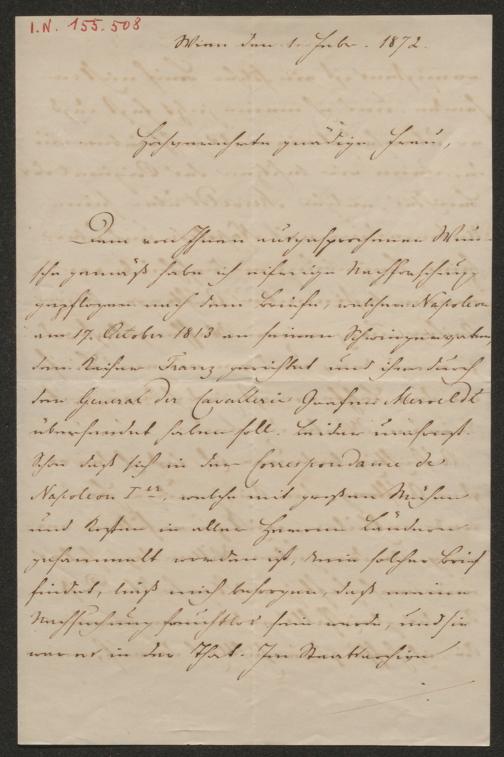 I.N. 155.508
Wien den 1. Febr. 1872.
Hochverehrte gnädige Frau,
Dem von Ihnen ausgesprochenen Wun-
sche gemäß habe ich eifrige Nachforschung
gepflogen nach dem Briefe, welchen Napoleon
am 17. October 1813 an seinen Schwiegervater,
den Kaiser Franz gerichtet und ihm durch
den General der Cavallerie Grafen Merveldt
übersendet haben soll. Leider
Schon daß sich in der Correspondance de
Napoleon I.er, welche mit großen Mühen
und Kosten in allen Ländern
gesammelt worden ist, kein solcher Brief
findet, ließ mich besorgen, daß meine
Nachsuchung fruchtlos sein werde, und sie
war es in der That. Im Staatsarchive